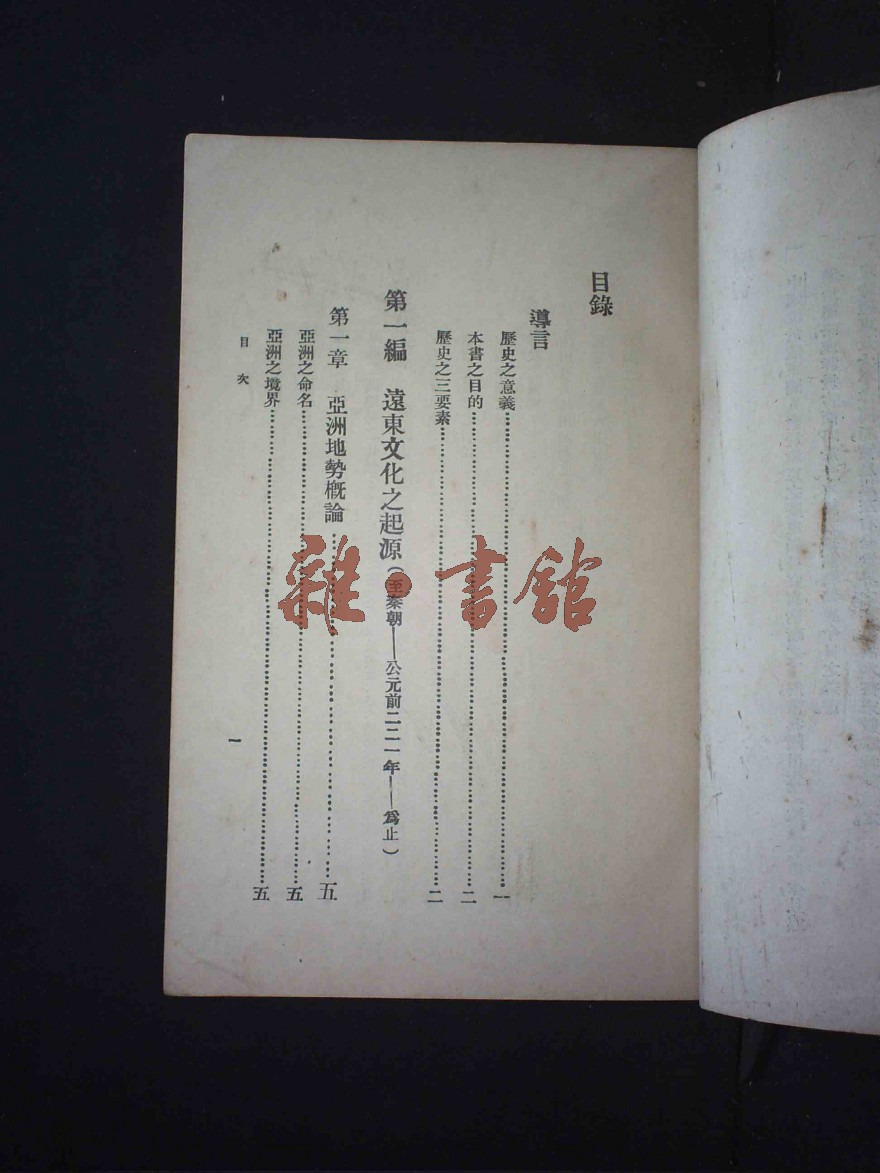 目錄
導言
歷史之意義……一
本書之目的……二
歷史之三要素……二
第一編 遠東文化之起源(至秦朝——公元前二二一年——爲止)
第一章 亞洲地勢概論……五
亞洲之命名……五
亞洲之境界……五
目次
一
雜·書館